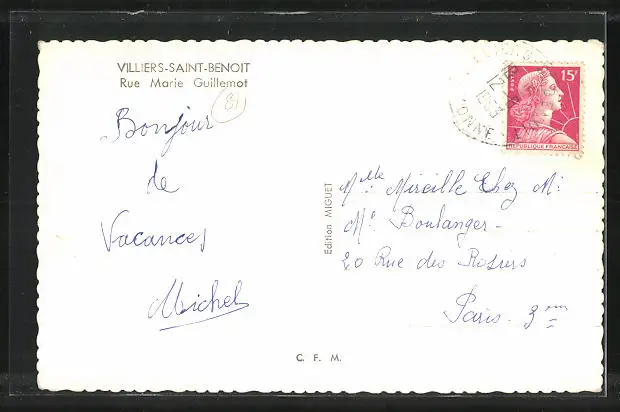 VILLIERS-SAINT-BENOIT
Rue Marie Guillemot
89
Bonjour
de
Vacances
Michel
Edition MIGUET
C. F. M.
POSTES
15F
REPUBLIQUE FRANCAISE
YONNE
Mlle Mireille Chez M.
Me Boulanger-
20 Rue des Rosiers
Paris. 3em